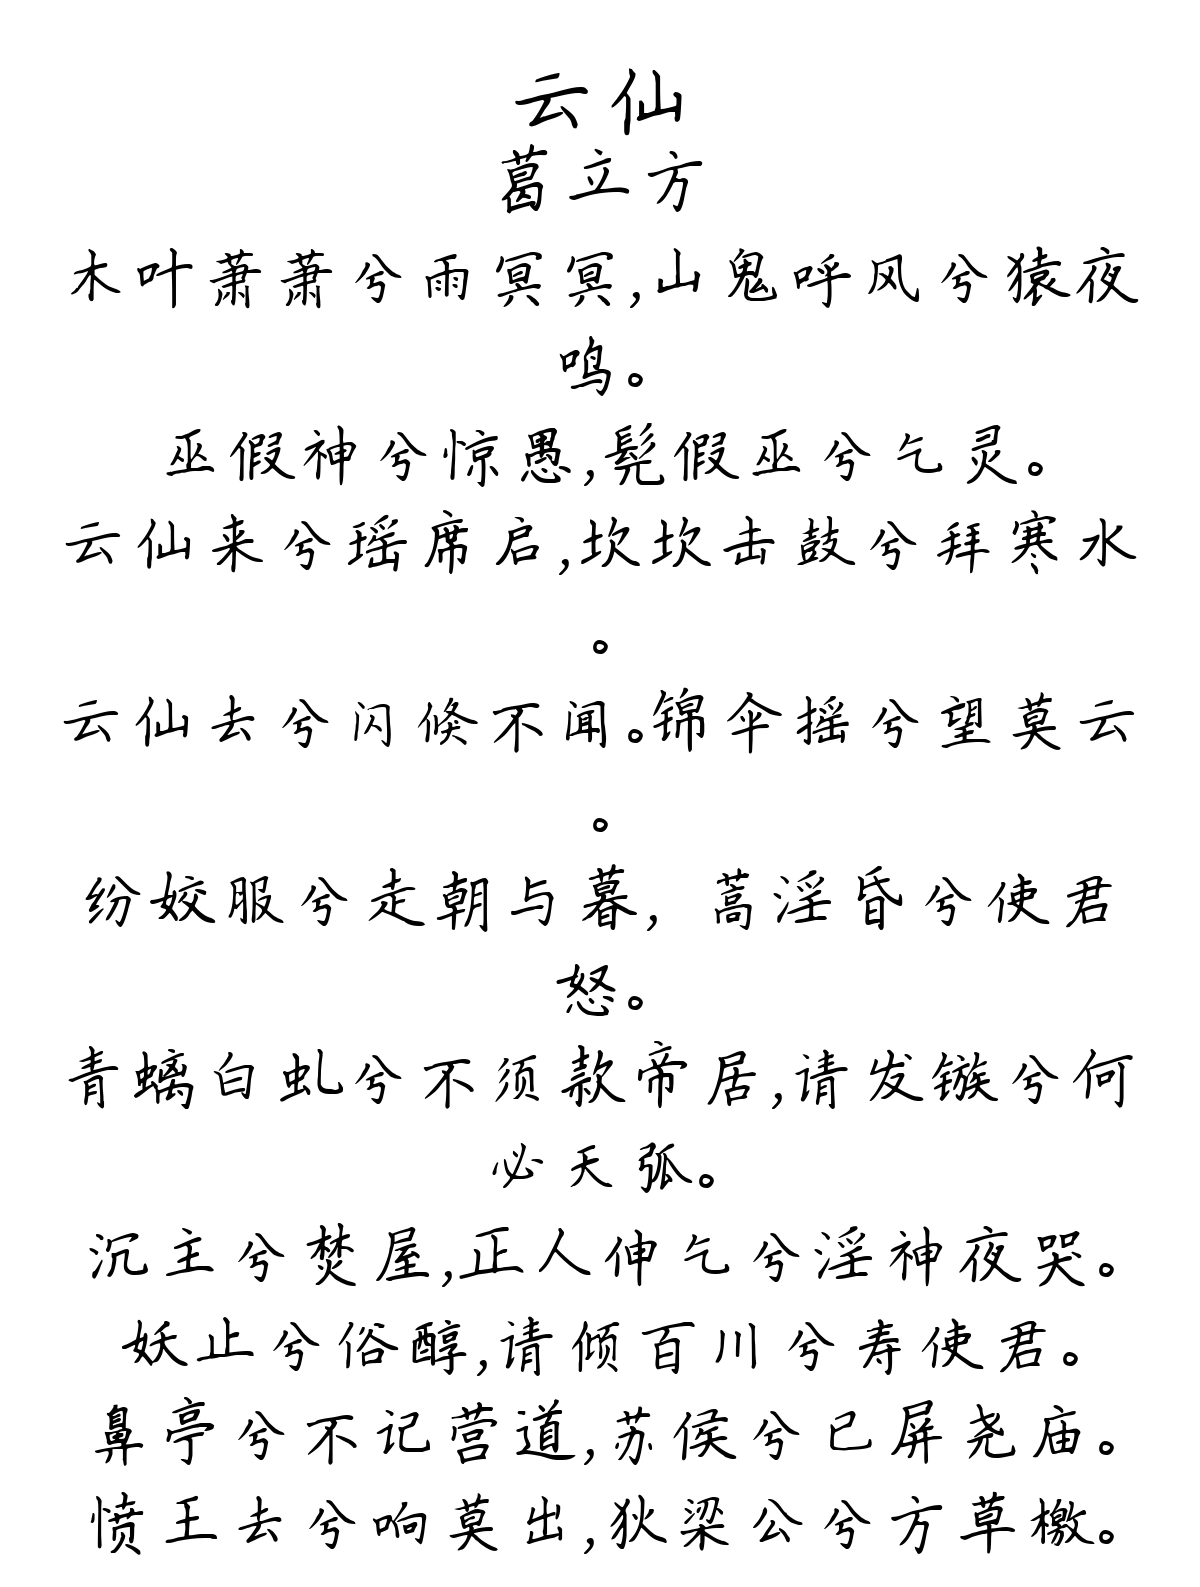 云仙
葛立方
木叶萧萧兮雨冥冥,山鬼呼风兮猿夜
鸣。
巫假神兮惊愚,髡假巫兮乞灵。
云仙来兮瑶席启,坎坎击鼓兮拜寒水
。
云仙去兮闪倏不闻。锦伞摇兮望莫云
。
纷姣服兮走朝与暮，蒿淫昏兮使君
怒。
青螭白虬兮不须款帝居,请发镞兮何
必天弧。
沉主兮焚屋,正人伸乞兮淫神夜哭。
妖止兮俗醇,请倾百川兮寿使君。
鼻亭兮不记营道,苏侯兮已屏尧庙。
愤王去兮响莫出,狄梁公兮方草檄。